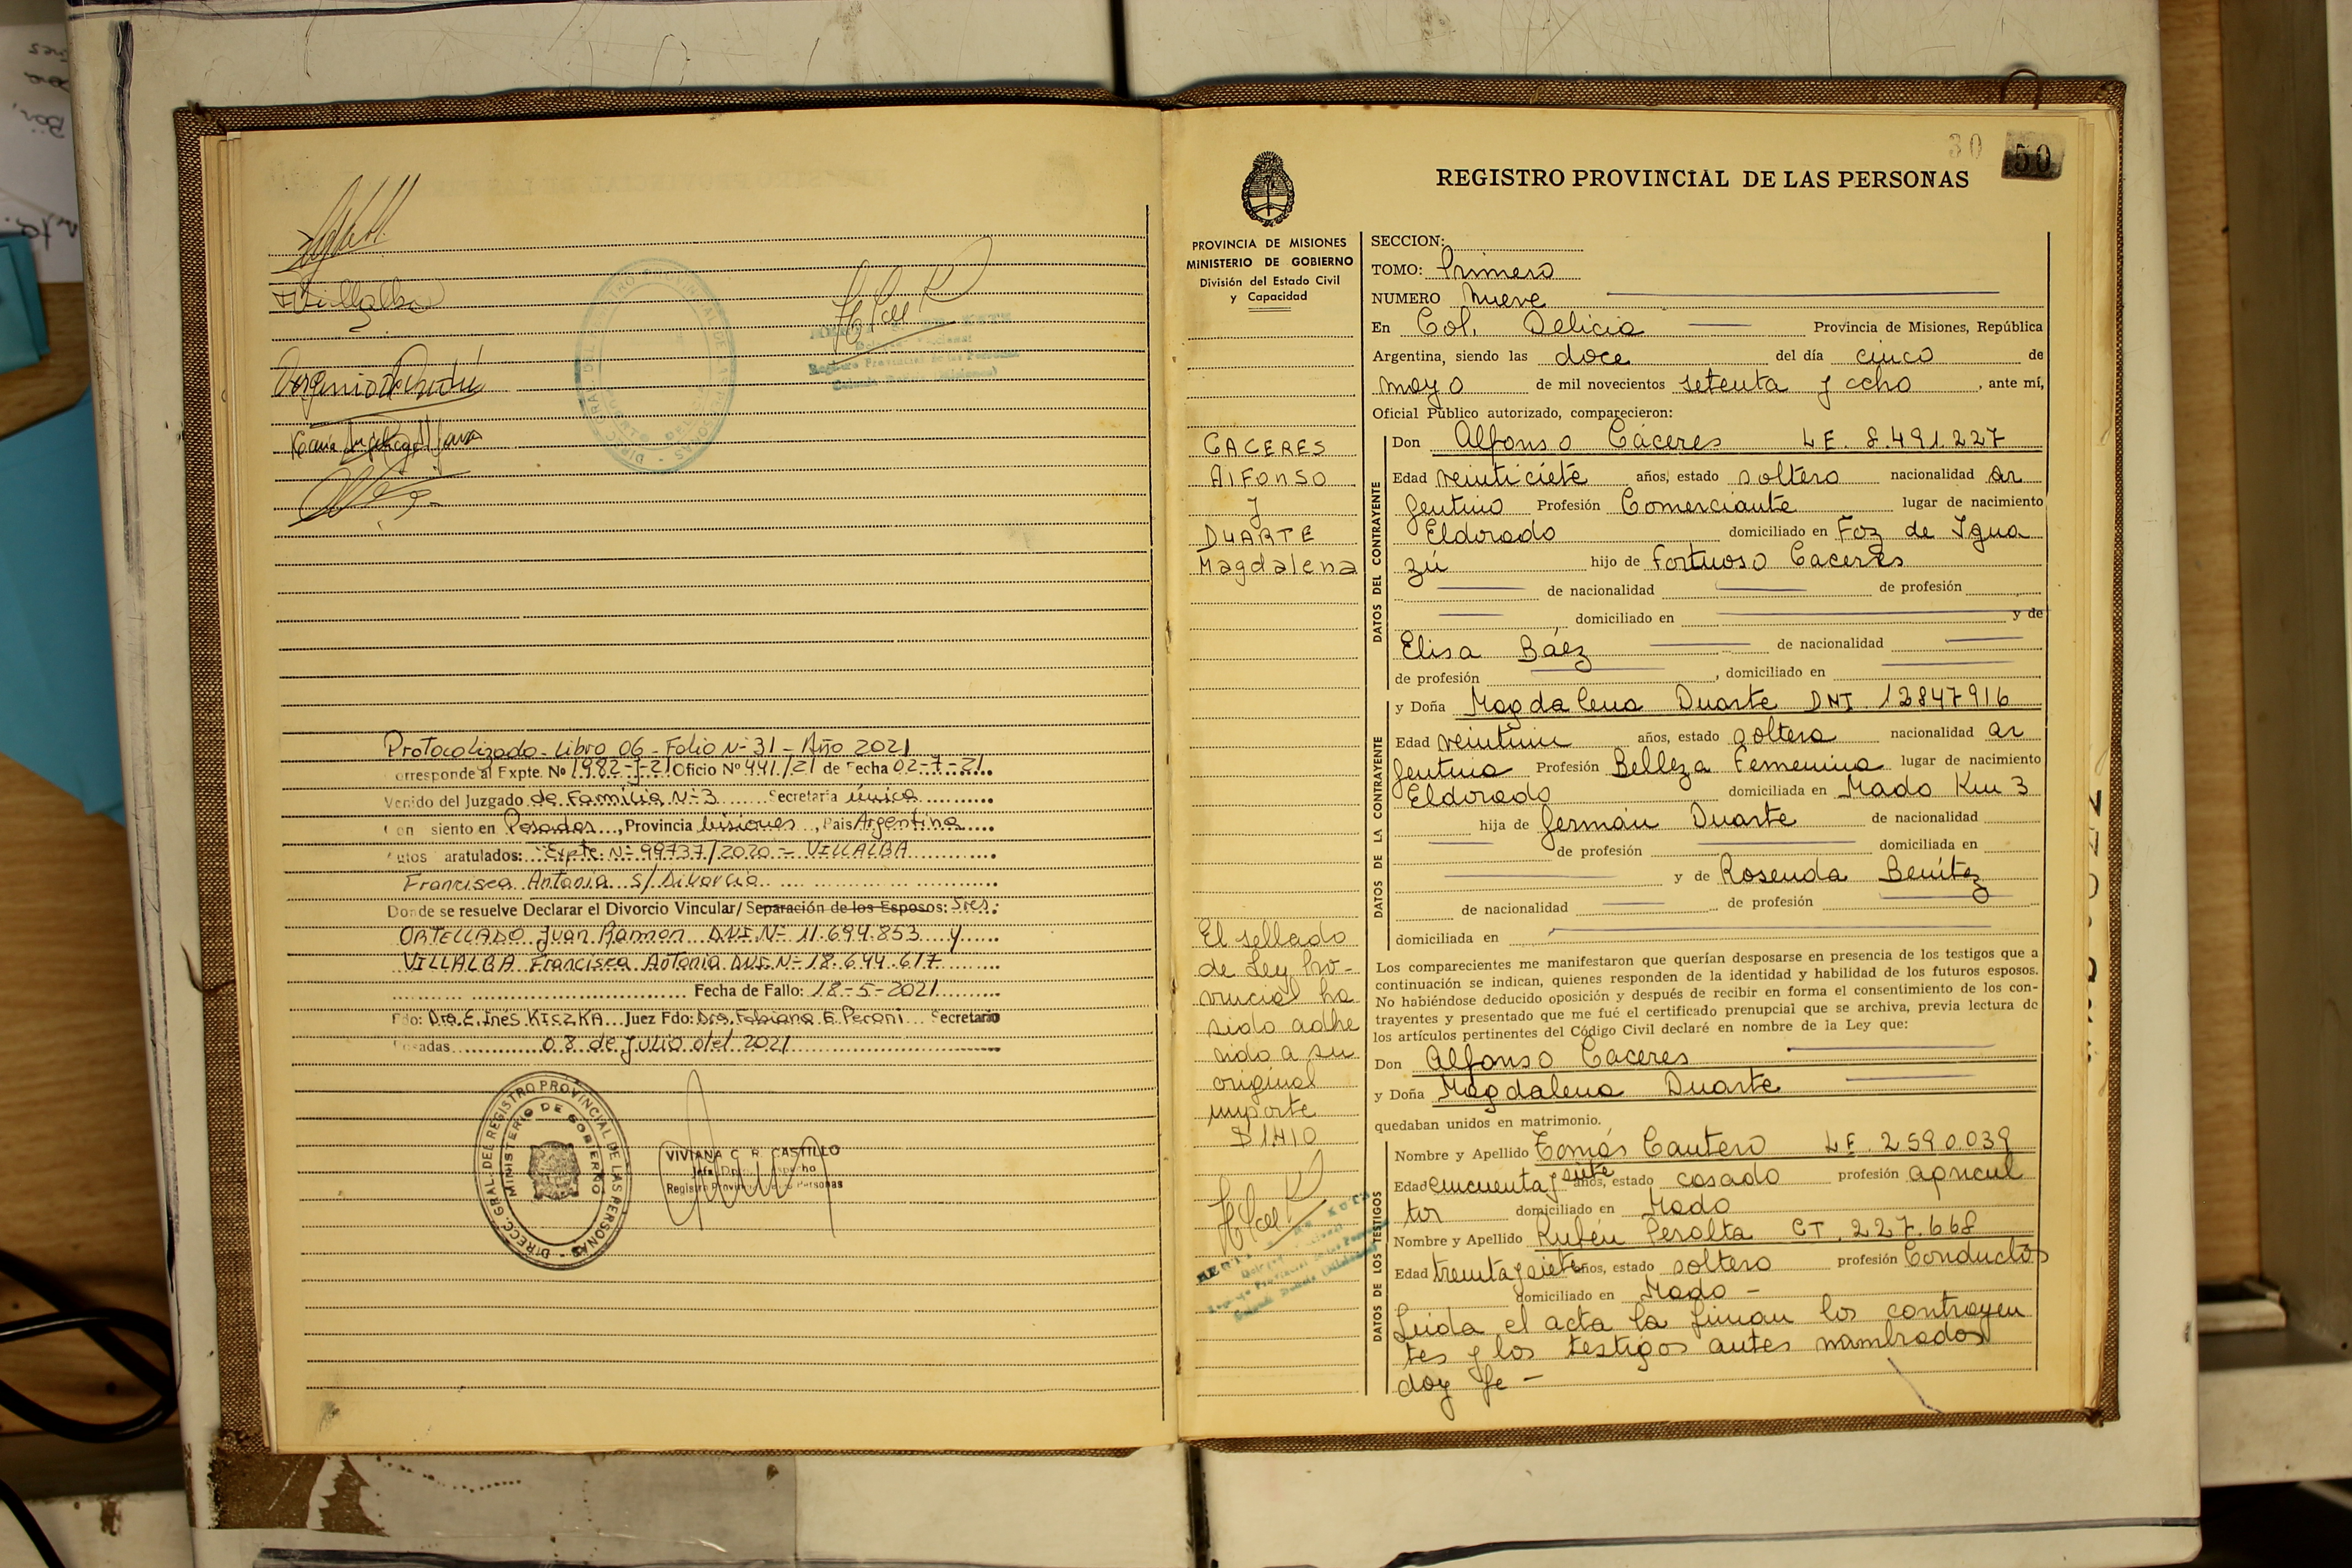 Villalba
Protocolizado - Libro 06 - Folio Nº 31 - Año 2021
orresponde al Expte. Nº 1982-J-21 Oficio Nº 441/21 de Fecha 02-7-21
Venido del Juzgado de Familia Nº 3 Secretaria única
on siento en Posadas, Provincia Misiones, Pais Argentina
utos aratulados: Expte. Nº 99737/2020 - VILLALBA
Francisca Antonia s/ Divorcio
Donde se resuelve Declarar el Divorcio Vincular/ Separación de los Esposos: Sres:
ORTELLADO Juan Ramon DNI. Nº 11.694.853 y
VILLALBA Francisca Antonia DNI. Nº 18.644.617
Fecha de Fallo: 18-5-2021
Fdo: Dra. E. Ines KICZKA Juez Fdo: Dra. Fabiana E Peroni Secretario
adas 08 de Julio del 2021
DIRECC. GRAL. DE REGISTRO PROVINCIAL DE LAS PERSONAS
MINISTERIO DE GOBIERNO
VIVIANA C. R. CASTILLO
Registro Provincial de las Personas
30
50
REGISTRO PROVINCIAL DE LAS PERSONAS
PROVINCIA DE MISIONES
MINISTERIO DE GOBIERNO
División del Estado Civil
y Capacidad
CACERES
AlFonso
y
DUARTE
Magdalena
El sellado
de Ley Pro-
vincial ha
sido adhe
rido a su
original
importe
$ 1410
SECCION:
TOMO: Primero
NUMERO Nueve
En Col. Delicia Provincia de Misiones, República
Argentina, siendo las doce del día cinco de
mayo de mil novecientos setenta y ocho, ante mí,
Oficial Público autorizado, comparecieron:
DATOS DEL CONTRAYENTE
Don Alfonso Cáceres L.E. 8.491.227
Edad veinticiete años, estado soltero nacionalidad ar
gentino Profesión Comerciante lugar de nacimiento
Eldorado domiciliado en Foz de Igua
zú hijo de Fortuoso Caceres
de nacionalidad de profesión
domiciliado en y de
Elisa Báez de nacionalidad
de profesión , domiciliado en
DATOS DE LA CONTRAYENTE
y Doña Magdalena Duarte DNI 12847916
Edad veintiun años, estado soltera nacionalidad ar
gentina Profesión Belleza Femenina lugar de nacimiento
Eldorado domiciliada en Mado Km 3
hija de Germán Duarte de nacionalidad
de profesión domiciliada en
y de Rosenda Benítez
de nacionalidad de profesión
domiciliada en
Los comparecientes me manifestaron que querían desposarse en presencia de los testigos que a
continuación se indican, quienes responden de la identidad y habilidad de los futuros esposos.
No habiéndose deducido oposición y después de recibir en forma el consentimiento de los con-
trayentes y presentado que me fué el certificado prenupcial que se archiva, previa lectura de
los artículos pertinentes del Código Civil declaré en nombre de la Ley que:
Don Alfonso Caceres
y Doña Magdalena Duarte
quedaban unidos en matrimonio.
DATOS DE LOS TESTIGOS
Nombre y Apellido Tomás Cantero L.E. 2590.039
Edad cincuenta y siete años, estado casado profesión agricul
tor domiciliado en Mado
Nombre y Apellido Rubén Peralta CT. 227.668
Edad treinta y siete años, estado soltero profesión Conductor
domiciliado en Mado -
Leida el acta la firman los contrayen
tes y los testigos antes nombrados
doy fe -